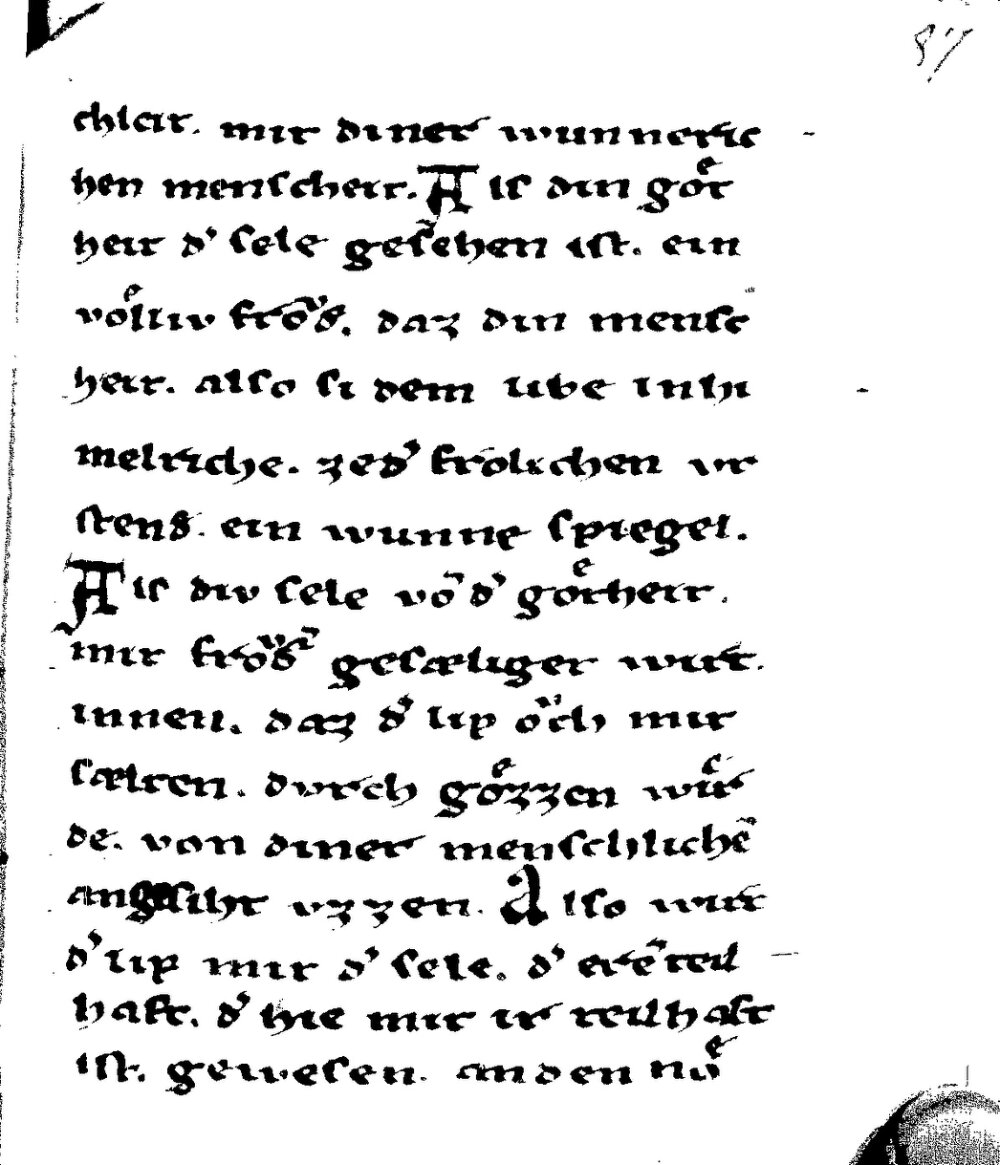 87
chait. mit diner wunnecli
hen menscheit. Als din gͦet
heit dˀ sele gesehen ist. ein
voͤlliv froͮdˀ. daz din mensc
heit. also si dem libe inhi
melriche. zedˀ frolichen vr
stend. ein wunne spiegel.
Als div sele võ dˀ goͤtheit.
mit froͮdˀ gesæliger wirt.
innen. daz dˀ lip oͮch mit
sælten. dvrch goͤzzen wuͤr
de. von diner menschlichẽ
angesiht vzzen. Also wirt
dˀ lip mit dˀ sele. dˀ erẽ teil
haft. dˀ hie mit ir teilhaft
ist. gewesen. an den noͤ